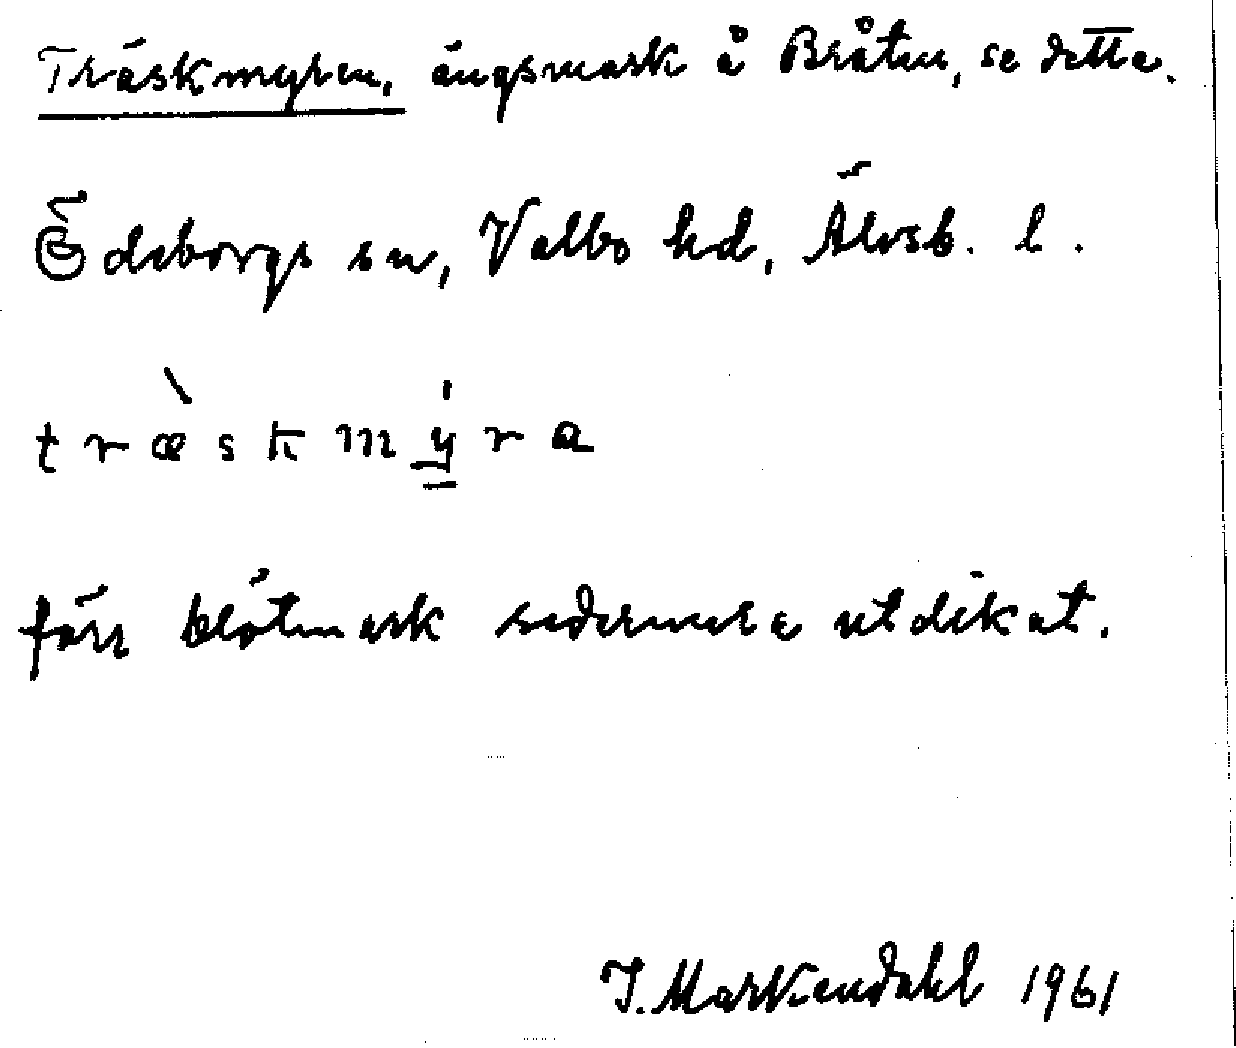 Träskmyren, ängsmark å Bråten, se detta.
Ödeborgs sn, Valbo hd, Älvsb. l.
træ̀skmý̲ra
förr blötmark sedermera utdikat.
J. Markendahl 1961